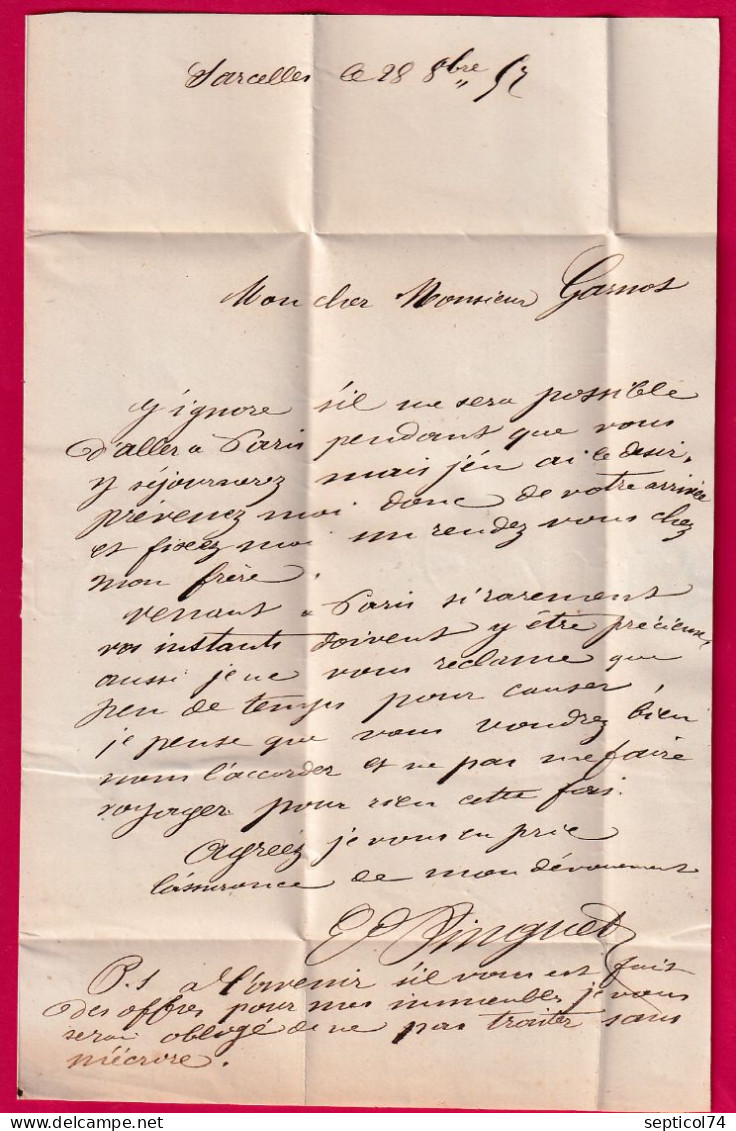 Sarcelles le 28 8bre 57
Mon cher Monsieur Garnot
J'ignore s'il me sera possible
d'aller à Paris pendant que vous
y séjournerez mais j'en ai le desir,
prévenez moi donc de votre arrivée
et fixez moi un rendez vous chez
mon frère.
venant à Paris si rarement
vos instants doivent y être précieux,
aussi je ne vous réclame que
peu de temps pour causer,
je pense que vous voudrez bien
nous l'accorder et ne pas me faire
voyager pour rien cette fois.
Agréez je vous en prie
l'assurance de mon dévouement
Ed Pinguet
P.S à l'avenir s'il vous est fait
des offres pour mes immeubles je vous
serai obligé de ne pas traiter sans
m'écrire.
septicol74